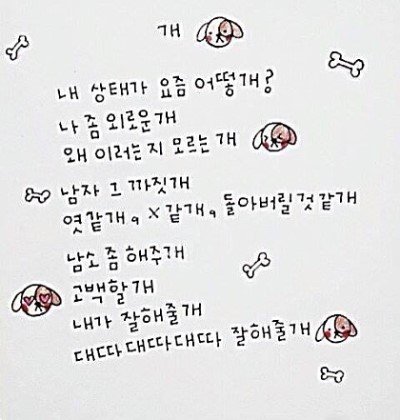 개
내 상태가 요즘 어떻개?
나 좀 외로운개
왜 이러는지 모르는개
남자 그까짓개
엿같개, X같개, 돌아버릴것같개
남소 좀 해주개
고백할개
내가 잘해줄개
대따대따대따 잘해줄개